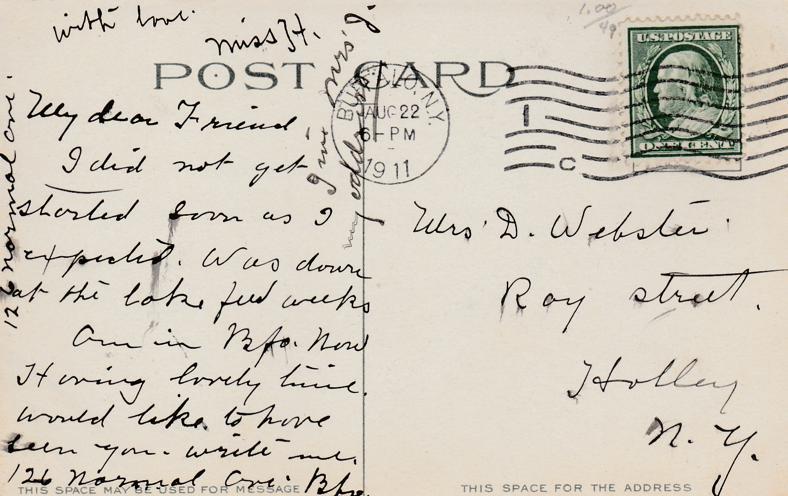 with love.
Miss H.
1.00/49
U.S. POSTAGE
ONE CENT
POST CARD
BUFFALO, N.Y.
AUG 22
6-PM
1911
I
C
My dear Friend
I did not get
started soon as I
expected. Was down
at the lake few weeks
Am in Bfo. Now
Having lovely time.
would like to have
seen you. write me.
126 Normal Ave. Bfo.
126 Normal Ave.
Mrs. J.
my address
Mrs D. Webster
Ray street.
Holley
N. Y.
THIS SPACE MAY BE USED FOR MESSAGE
THIS SPACE FOR THE ADDRESS